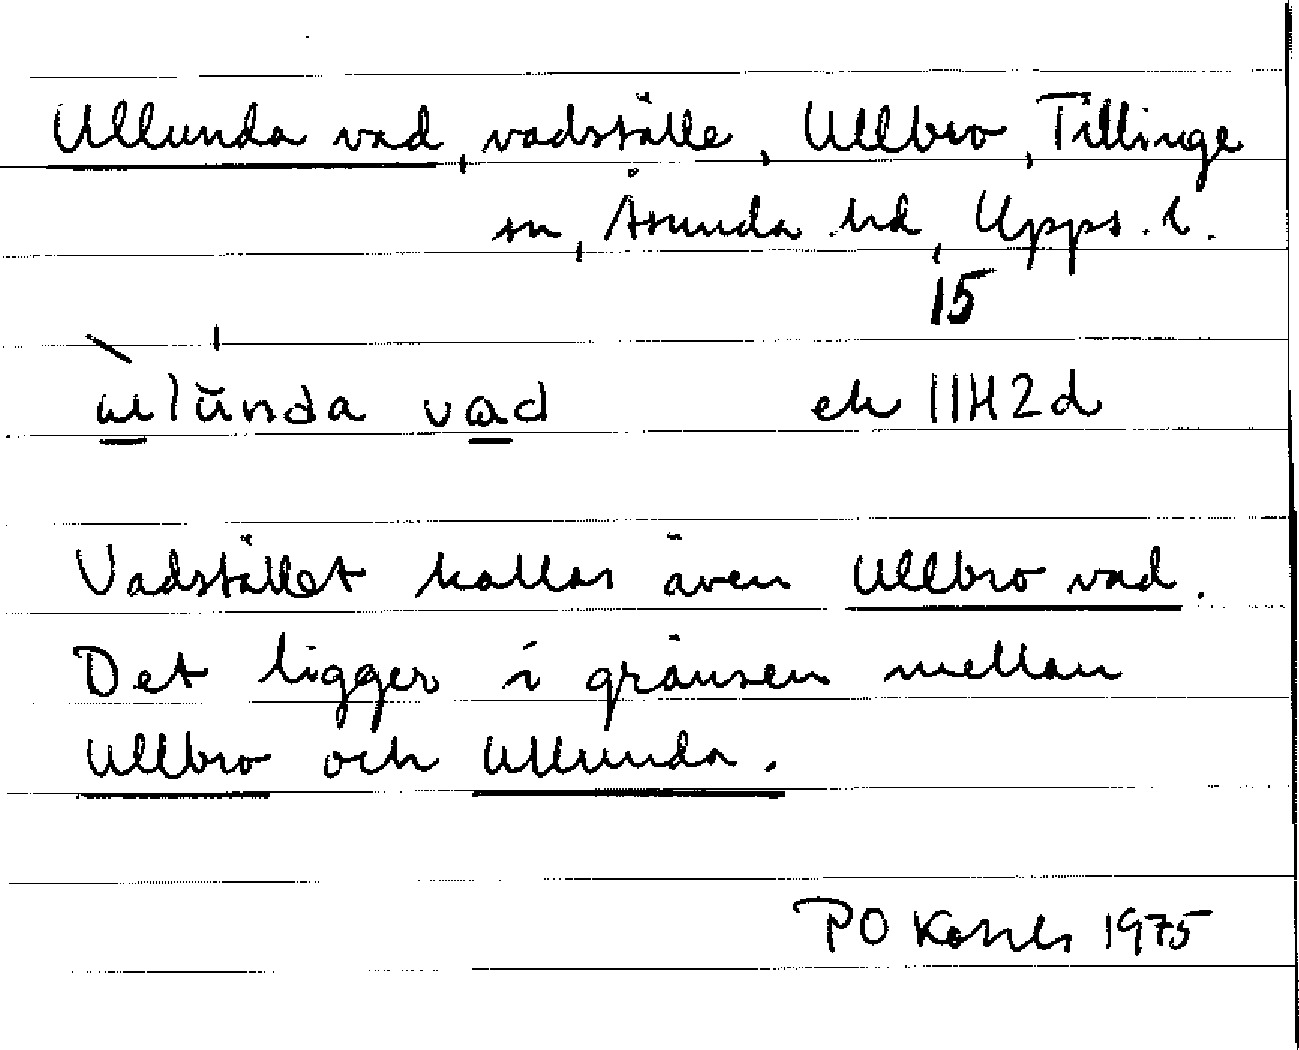 Ullunda vad, vadställe, Ullbro, Tillinge
sn, Åsunda hd, Upps. l.
15
vad ek 11H2d
Vadstället kallas även Ullbro vad.
Det ligger i gränsen mellan
Ullbro och Ullunda.
PO 1975